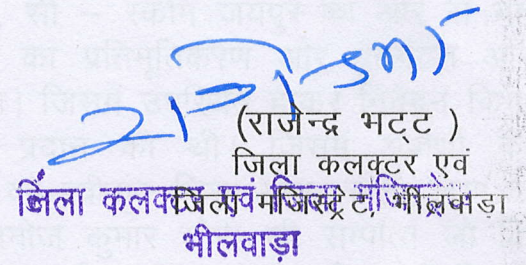 (राजेन्द्र भट्ट )
जिला कलक्टर एवं
जिला मजिस्ट्रेट, भीलवाड़ा
जिला कलक्टर एवं जिला मजिस्ट्रेट
भीलवाड़ा